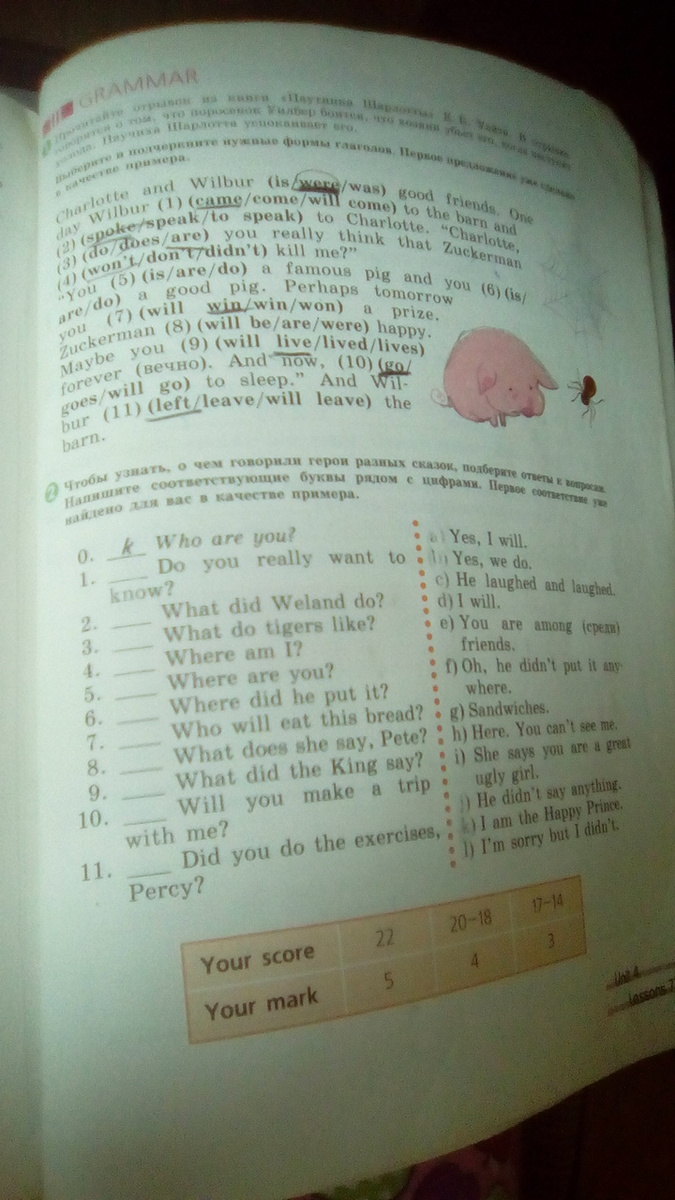 II GRAMMAR
1 Прочитайте отрывок из книги «Паутинка Шарлотты» Е. Б. Уайта. В отрывке
говорится о том, что поросенок Уилбер боится, что хозяин убьет его, когда наступят
холода. Паучиха Шарлотта успокаивает его.
Выберите и подчеркните нужные формы глаголов. Первое предложение уже сделано
в качестве примера.
Charlotte and Wilbur (is/were/was) good friends. One
day Wilbur (1) (came/come/will come) to the barn and
(2) (spoke/speak/to speak) to Charlotte. “Charlotte,
(3) (do/does/are) you really think that Zuckerman
(4) (won't/don't/didn't) kill me?”
“You (5) (is/are/do) a famous pig and you (6) (is/
are/do) a good pig. Perhaps tomorrow
you (7) (will win/win/won) a prize.
Zuckerman (8) (will be/are/were) happy.
Maybe you (9) (will live/lived/lives)
forever (вечно). And now, (10) (go/
goes/will go) to sleep.” And Wil-
bur (11) (left/leave/will leave) the
barn.
2 Чтобы узнать, о чем говорили герои разных сказок, подберите ответы к вопросам.
Напишите соответствующие буквы рядом с цифрами. Первое соответствие уже
найдено для вас в качестве примера.
0. k Who are you?
1. ___ Do you really want to
know?
2. ___ What did Weland do?
3. ___ What do tigers like?
4. ___ Where am I?
5. ___ Where are you?
6. ___ Where did he put it?
7. ___ Who will eat this bread?
8. ___ What does she say, Pete?
9. ___ What did the King say?
10. ___ Will you make a trip
with me?
11. ___ Did you do the exercises,
Percy?
a) Yes, I will.
b) Yes, we do.
c) He laughed and laughed.
d) I will.
e) You are among (среди)
friends.
f) Oh, he didn't put it any-
where.
g) Sandwiches.
h) Here. You can't see me.
i) She says you are a great
ugly girl.
j) He didn't say anything.
k) I am the Happy Prince.
l) I'm sorry but I didn't.
Your score 22 20–18 17–14
Your mark 5 4 3
Unit 4
Lessons 7